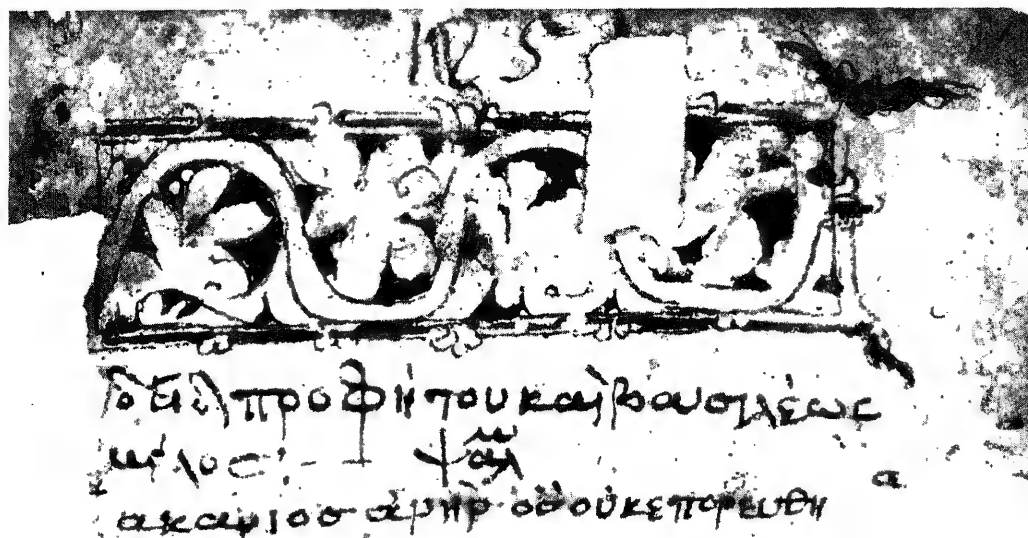 δαδ προφήτου καὶ βασιλέως
μέλος ψαλμ
μακάριος ἀνὴρ ὃσ οὐκ ἐπορεύθη